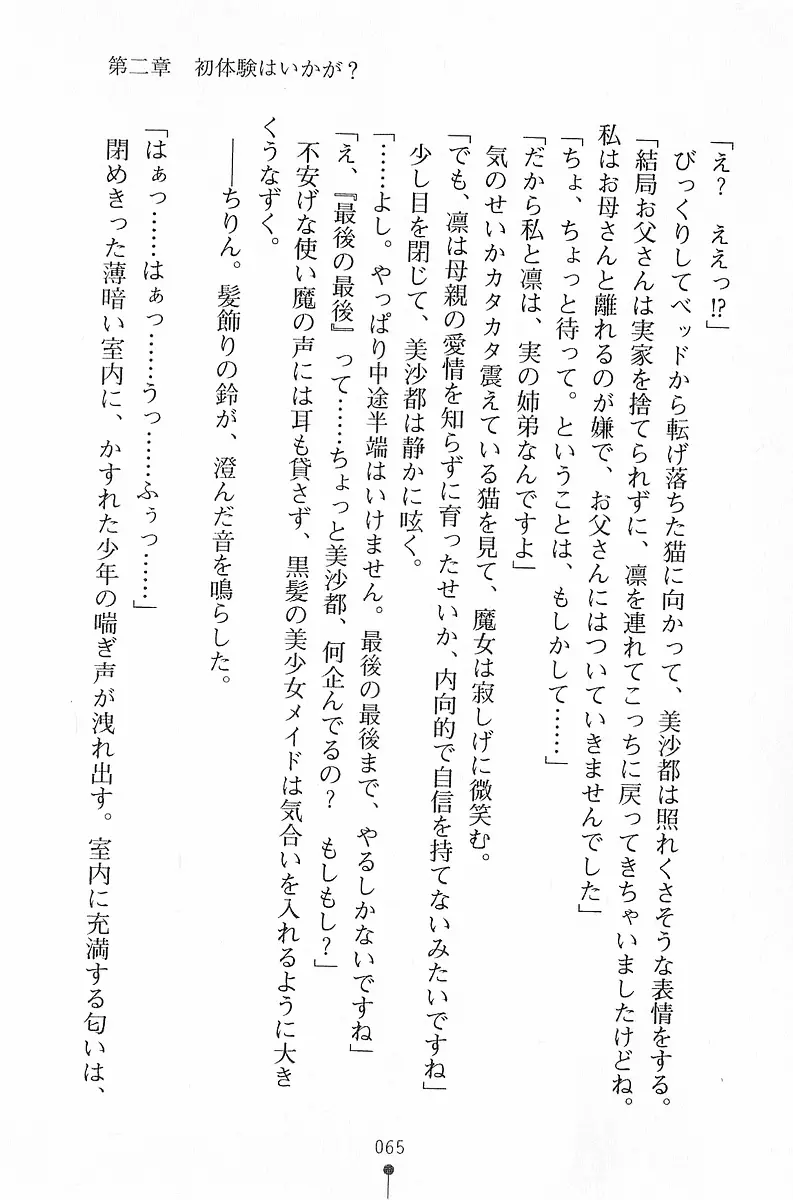 第二章　初体験はいかが？
「え？　ええっ!?」
びっくりしてベッドから転げ落ちた猫に向かって、美沙都は照れくさそうな表情をする。
「結局お父さんは実家を捨てられずに、凛を連れてこっちに戻ってきちゃいましたけどね。
私はお母さんと離れるのが嫌で、お父さんにはついていきませんでした」
「ちょ、ちょっと待って。ということは、もしかして……」
「だから私と凛は、実の姉弟なんですよ」
気のせいかカタカタ震えている猫を見て、魔女は寂しげに微笑む。
「でも、凛は母親の愛情を知らずに育ったせいか、内向的で自信を持てないみたいですね」
少し目を閉じて、美沙都は静かに呟く。
「……よし。やっぱり中途半端はいけません。最後の最後まで、やるしかないですね」
「え、『最後の最後』って……ちょっと美沙都、何企んでるの？　もしもし？」
不安げな使い魔の声には耳も貸さず、黒髪の美少女メイドは気合いを入れるように大き
くうなずく。
――ちりん。髪飾りの鈴が、澄んだ音を鳴らした。
065